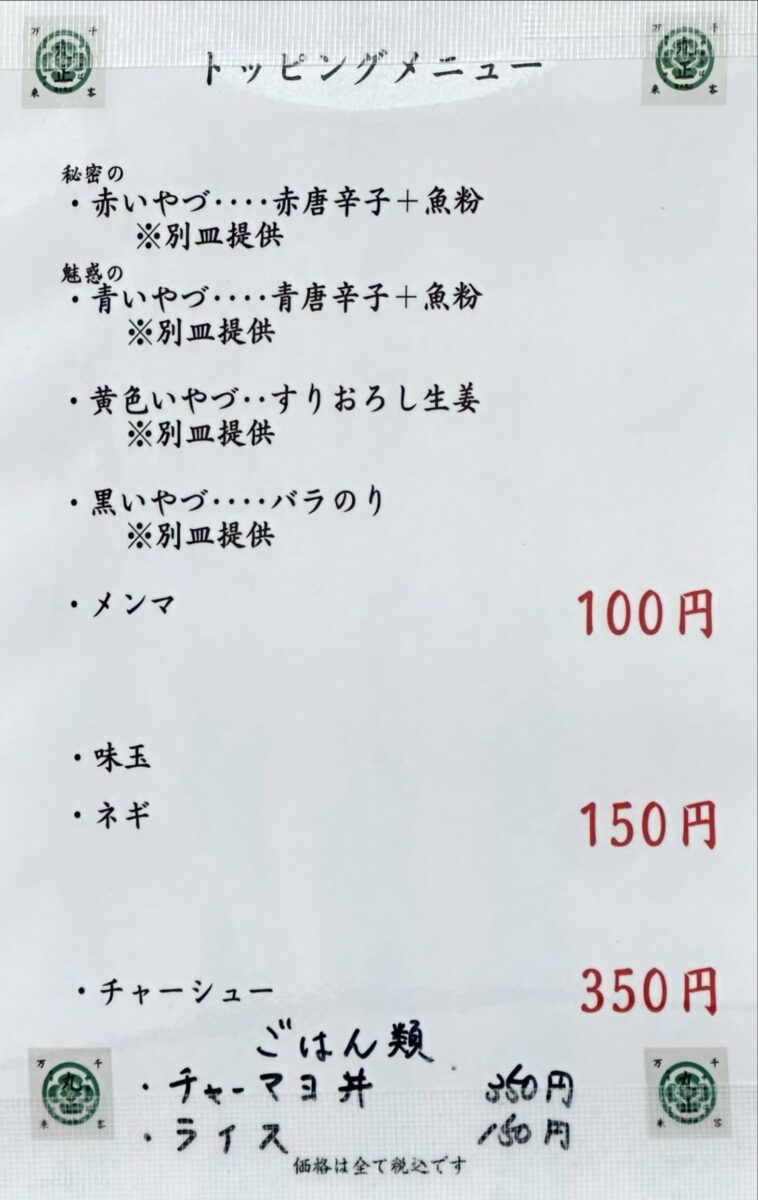 トッピングメニュー
秘密の
・赤いやづ‥‥赤唐辛子＋魚粉
※別皿提供
魅惑の
・青いやづ‥‥青唐辛子＋魚粉
※別皿提供
・黄色いやづ‥すりおろし生姜
※別皿提供
・黒いやづ‥‥バラのり
※別皿提供
・メンマ 100円
・味玉
・ネギ 150円
・チャーシュー 350円
ごはん類
・チャーマヨ丼 350円
・ライス 150円
価格は全て税込です
千客万来
丸正